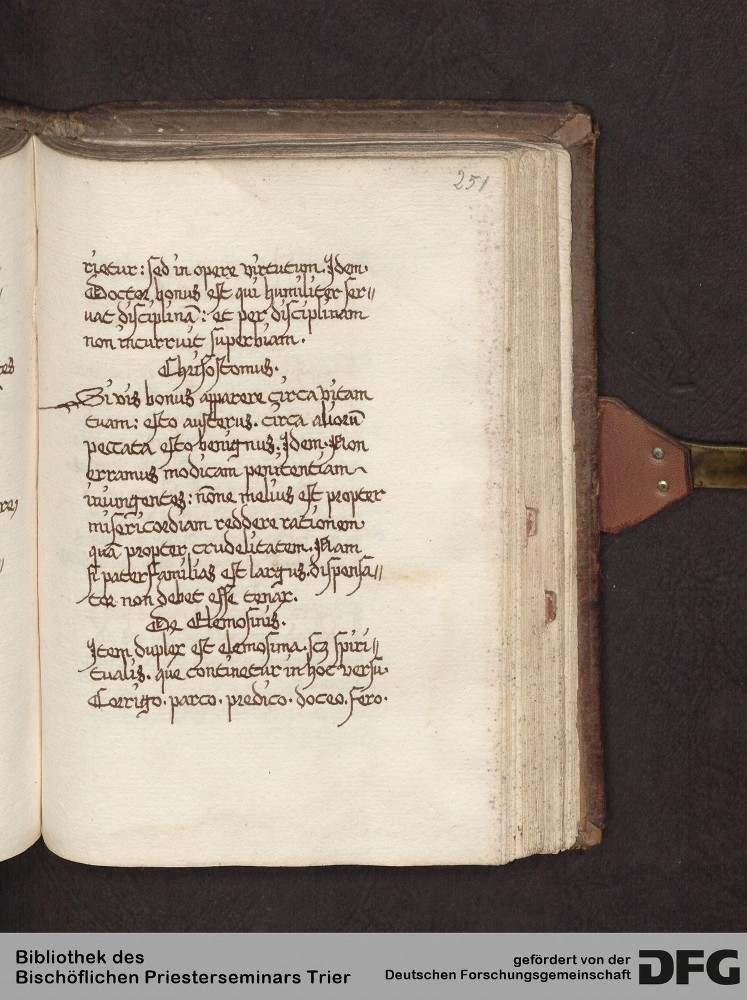 251
rietur: sed in opere virtutum. Idem
Doctor bonus est qui humiliter ser〃
uat disciplinā: et per disciplinam
non incurruit superbiam.
Chrisostomus.
Si vis bonus apparere circa vitam
tuam: esto austerus. circa alioruȝ
peccata esto benignus: Idem. Non
erramus modicam penitentiam
iniungentes: nōne melius est propter
misericordiam reddere rationem
quā propter crudelitatem. Nam
si paterfamilias est largus. dispensa〃
tor non debet esse tenax.
De Elemosinis.
Item duplex est elemosima. scȝ spiri〃
tualis. que continetur in hoc versu.
Corrigo. parco. predico. doceo. fero.
Bibliothek des
Bischöflichen Priesterseminars Trier
gefördert von der
Deutschen Forschungsgemeinschaft
DFG